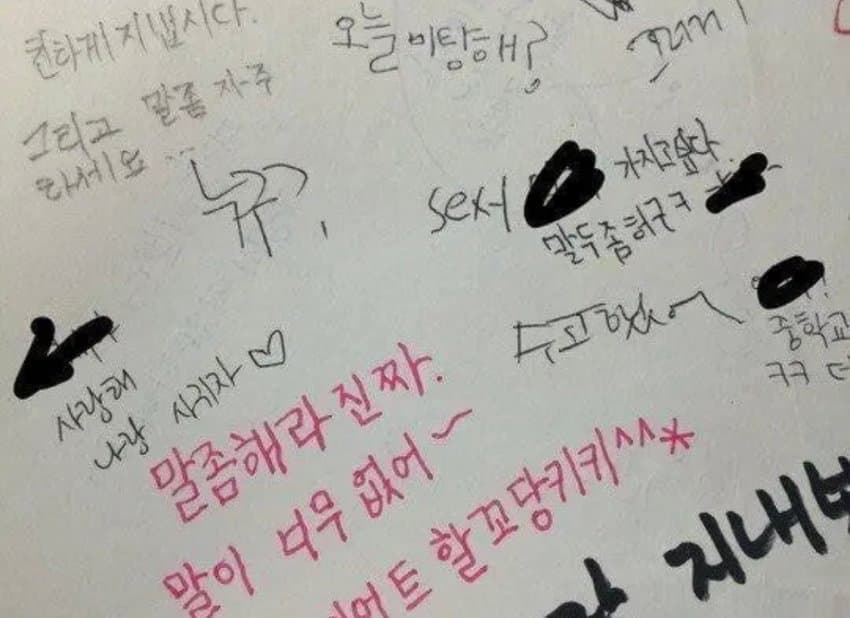 친하게 지냅시다.
그리고 말좀 자주
하세요...
오늘 미탕해?
뉴규?,
가지고싶다.
말두좀허구ㅋ
수고했어~
중학교
ㅋㅋ
사랑해
나랑 사귀자♡
말좀해라 진짜.
말이 너무 없어~
트 할꼬당키키^^*
지내